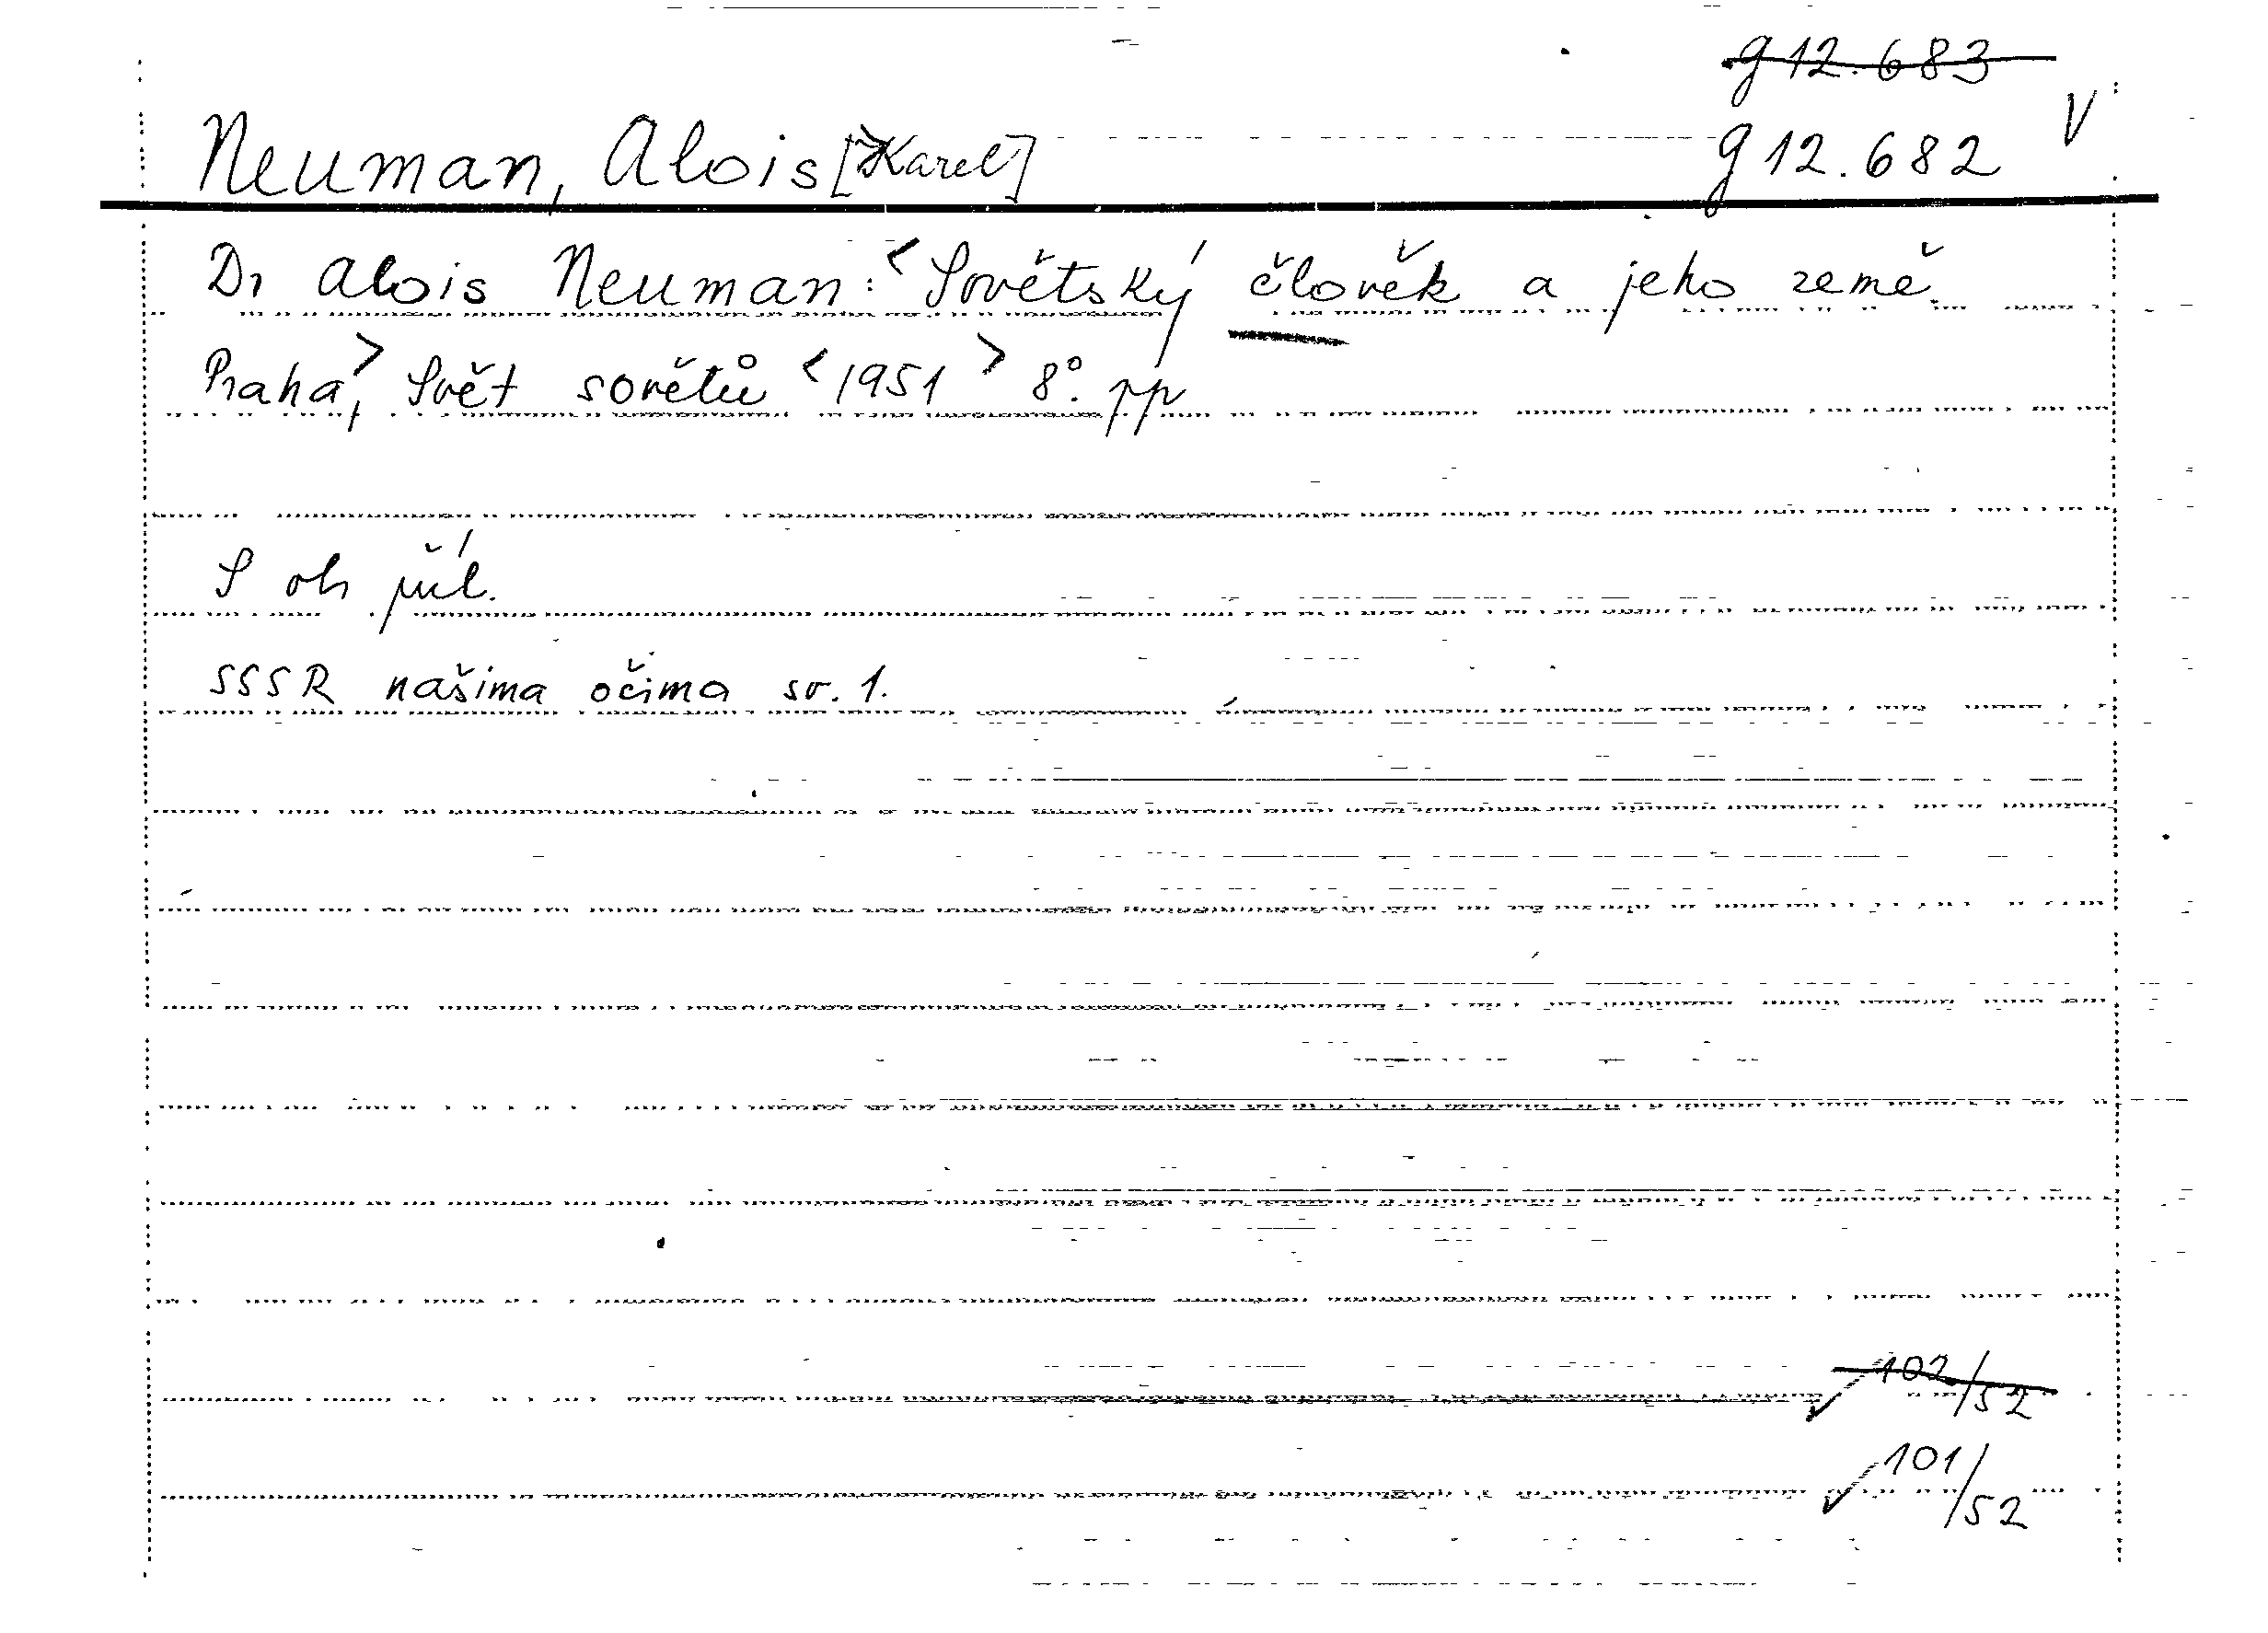 g 12.683
V
Neuman, Alois [Karel] g 12.682
Dr Alois Neuman: <Sovětský člověk a jeho země.
Praha,> Svět sovětů <1951> 8°. pp
S ob příl.
SSSR našima očima sv. 1.
102/52
101/52